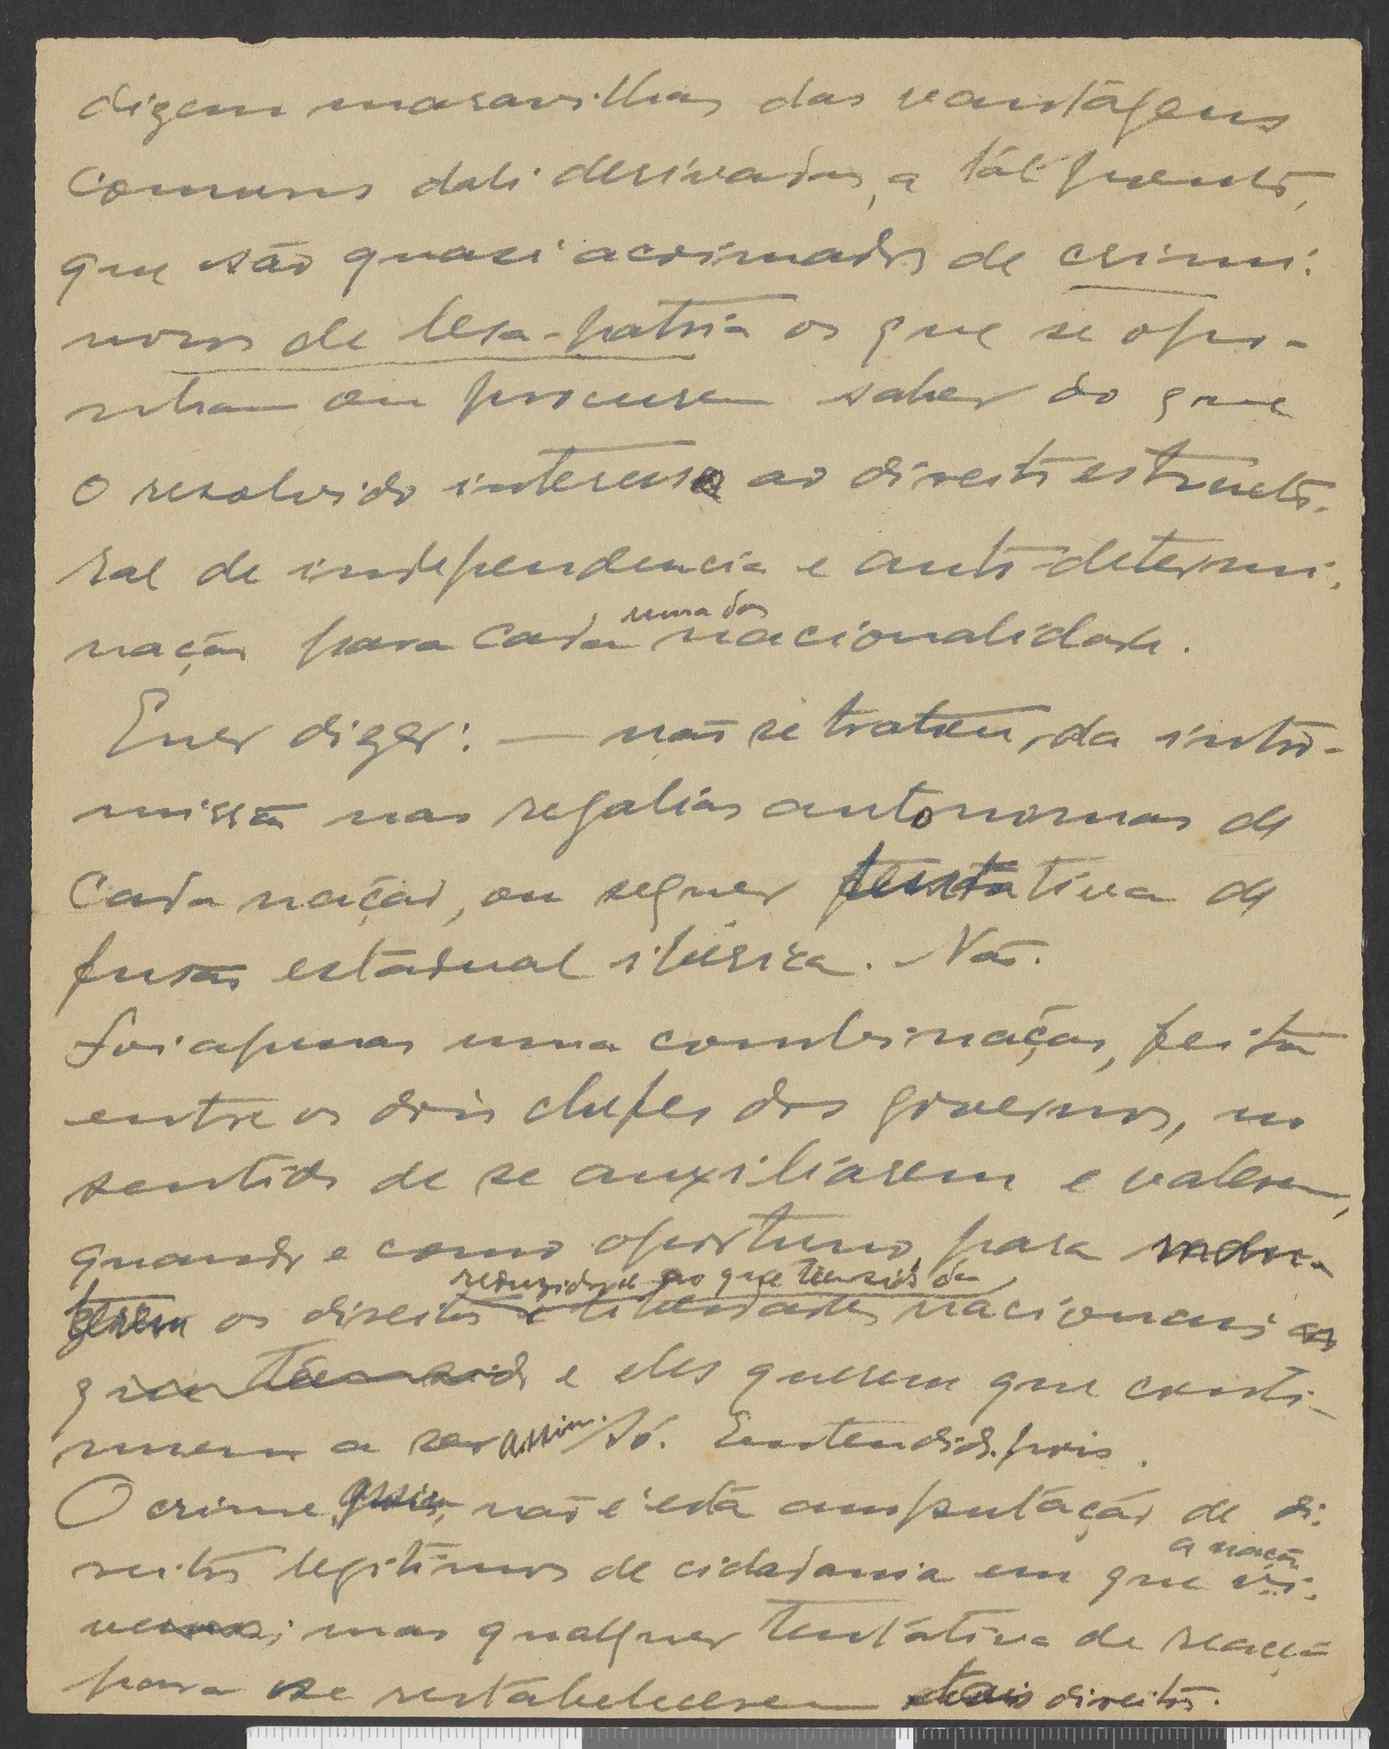 dizem maravilhas das vantágens
comuns dali derivadas, a tál ponto,
que são quasi acoimados de crimi-
nosos de lesa-patria os que se opo-
nham ou procurem saber do que
o resolvido interessa ao direito estructo-
ral de independencia e auto-determi-
nação para cada uma das nacionalidade.
Quer dizer: — não se tratou, da intro-
missão nas regalias autonomas de
cada nação, ou sequer tentativa de
fusão estadual ibérica. Não.
Foi apenas uma combinação, feita
entre os dois chefes dos governos, no
sentido de se auxiliarem e valerem,
quando e como oportuno, para
os direitos e liberdades reduzidos ao que teem sido da nacionais
que teem sido e eles querem que conti-
nuem a ser assim. Só. Entendido, pois.
O crime, pois, não é esta amputação de di-
reitos legitimos de cidadania em que a nação vi-
vemos; mas qualquer tentátiva de reacção
para se restabelecerem tais direitos.